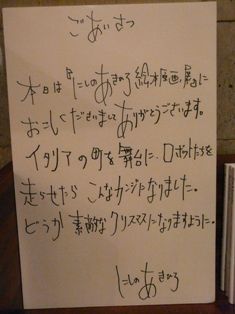 ごあいさつ
本日は『にしのあきひろ絵本原画展』に
おこしくださいましてありがとうございます。
イタリアの町を舞台に、ロボットたちを
走らせたら こんなカンジになりました。
どうか 素敵なクリスマスになりますように。
にしのあきひろ